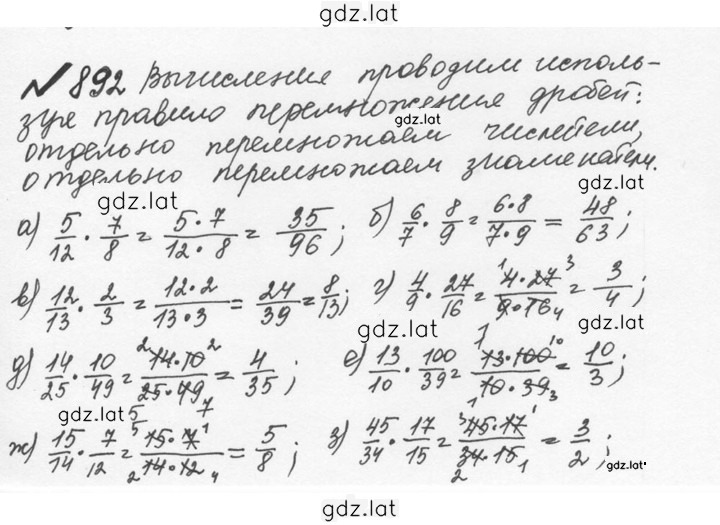 gdz.lat
№ 892 Вычисление проводим исполь-
зуя правило перемножения дробей:
gdz.lat
отдельно перемножаем числители,
отдельно перемножаем знаменатели.
gdz.lat gdz.lat
а) 5/12 · 7/8 = 5·7/12·8 = 35/96; б) 6/7 · 8/9 = 6·8/7·9 = 48/63;
в) 12/13 · 2/3 = 12·2/13·3 = 24/39 = 8/13; г) 4/9 · 27/16 = 4·27/9·16 = 3/4;
gdz.lat
д) 14/25 · 10/49 = 14·10/25·49 = 4/35; е) 13/10 · 100/39 = 13·100/10·39 = 10/3;
gdz.lat
ж) 15/14 · 7/12 = 15·7/14·12 = 5/8; з) 45/34 · 17/15 = 45·17/34·15 = 3/2;
gdz.lat
gdz.lat